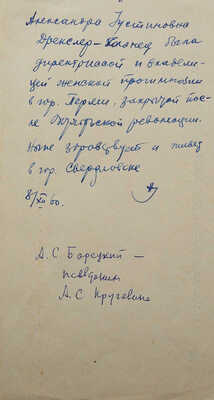 Александра Густиновна
Дрекслер- была
директрисой и владели-
цей женской прогимназии
в гор. Перми, закрытой пос-
ле Октябрьской революции.
Ныне здравствует и живет
в гор. Свердловске
8/XII 60.
А. С. Борецкий —
псевдоним
А. С. Пругавина